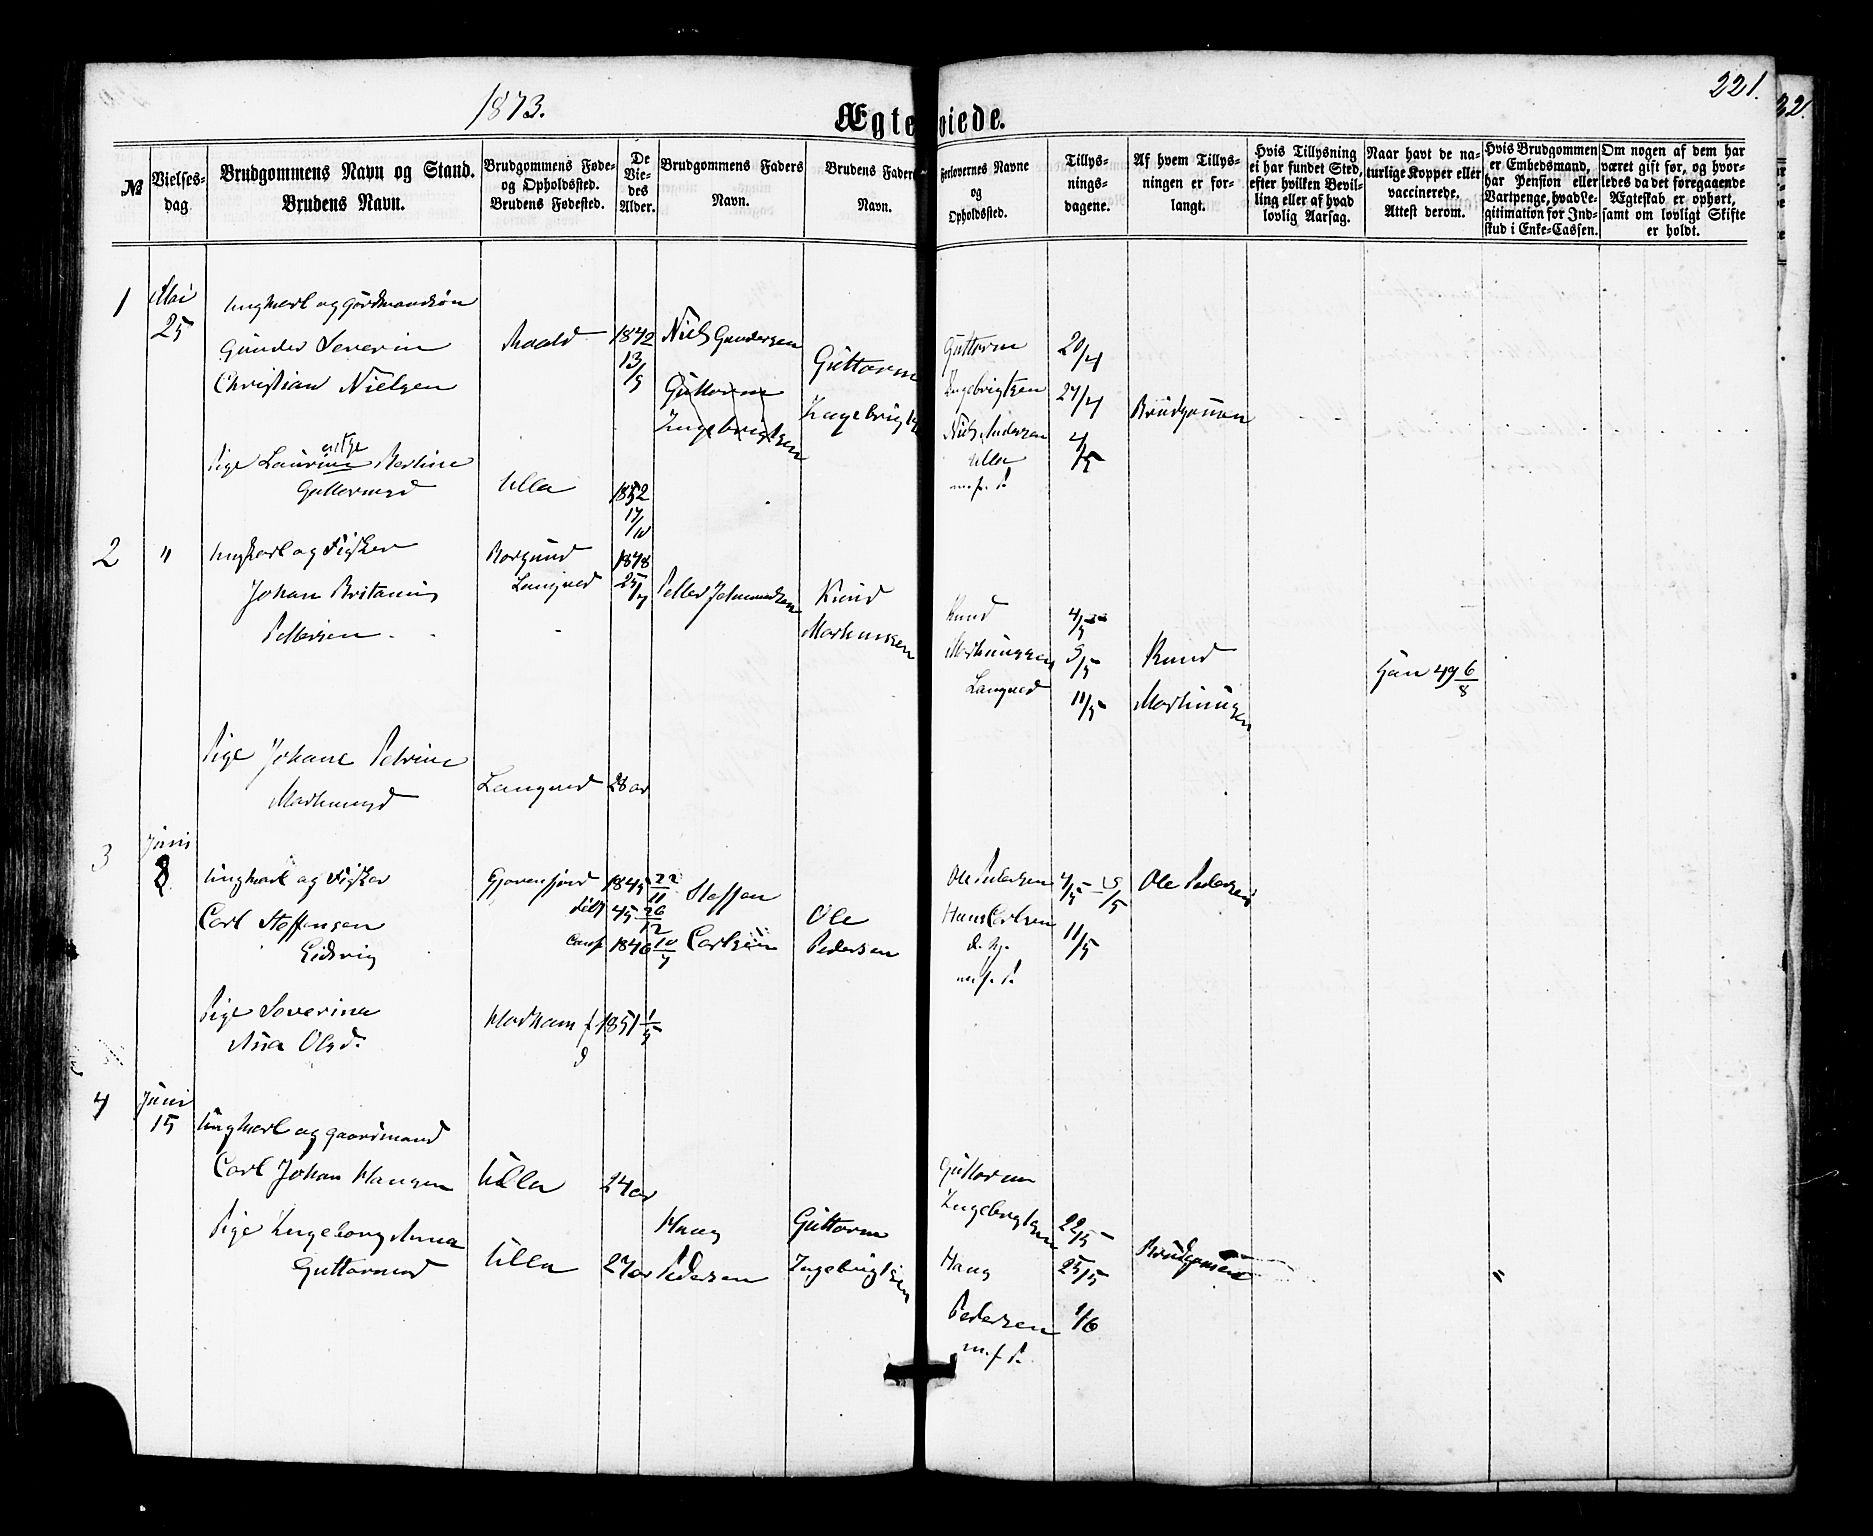 1873.
Ægteviede.
221.
32.
№
Vielses-
dag.
Brudgommens Navn og Stand.
Brudens Navn.
Brudgommens Føde-
og Opholdssted.
Brudens Fødested.
De
Vie-
des
Alder.
Brudgommens Faders
Navn.
Brudens Faders
Navn.
Forlovernes Navne
og
Opholdssted.
Tillys-
nings-
dagene.
Af hvem Tillys-
ningen er for-
langt.
Hvis Tillysning
ei har fundet Sted,
efter hvilken Bevil-
ling eller af hvad
lovlig Aarsag.
Naar havt de na-
turlige Kopper eller
vaccinerede.
Attest derom.
Hvis Brudgommen
er Embedsmand,
har Pension eller
Vartpenge, hvad Le-
gitimation for Ind-
skud i Enke-Cassen.
Om nogen af dem har
været gift før, og hvor-
ledes da det foregaaende
Ægteskab er ophørt,
samt om lovligt Skifte
er holdt.
1
Mai
25
Ungkarl og Gårdmandsøn
Gunder Severin
Christian Nielsen
Roald
1842
13/9
Niels Gundersen
Guttorm
Ingebrigtsen
Guttorm
Ingebrigts
Guttorm
Ingebrigtsen
Niels Gundersen
Ulla
m. f. P.
20/4
27/4
4/5
Brudgommen
Pige Laurine Bertine
Guttormsd
Ulla
1852
17/10
2
"
Ungkarl og Fisker
Johan Britanius
Pettersen
Borgund
Langved
1848
25/7
Petter Johannessen
Knud
Markussen
Knud
Markussen
Langved
4/5
5/5
11/5
Knud
Markussen
Han 49 6/8
Pige Johane Petrine
Markusd
Langved
28 aar
3
Juni
8
Ungkarl og Fisker
Carl Steffensen
Eidsvig
1845 22/11
født 45 26/12
Conf 1846 10/7
Steffen
Carlsen
Ole
Pedersen
Ole Pedersen
Hans Carlsen
m. f. P.
4/5 5/5
11/5
Ole Pedersen
Pige Severina
Ana Olsd.
Harham
1851 1/5
4
Juni
15
Ungkarl og gaardmand
Carl Johan Hansen
Ulla
24 aar
Hans
Pedersen
Guttorm
Ingebrigtsen
Guttorm
Ingebrigtsen
Hans
Pedersen
m. f. P.
22/5
25/5
1/6
Brudgommen
"
Pige Ingeborg Anna
Guttormsd
Ulla
27 aar